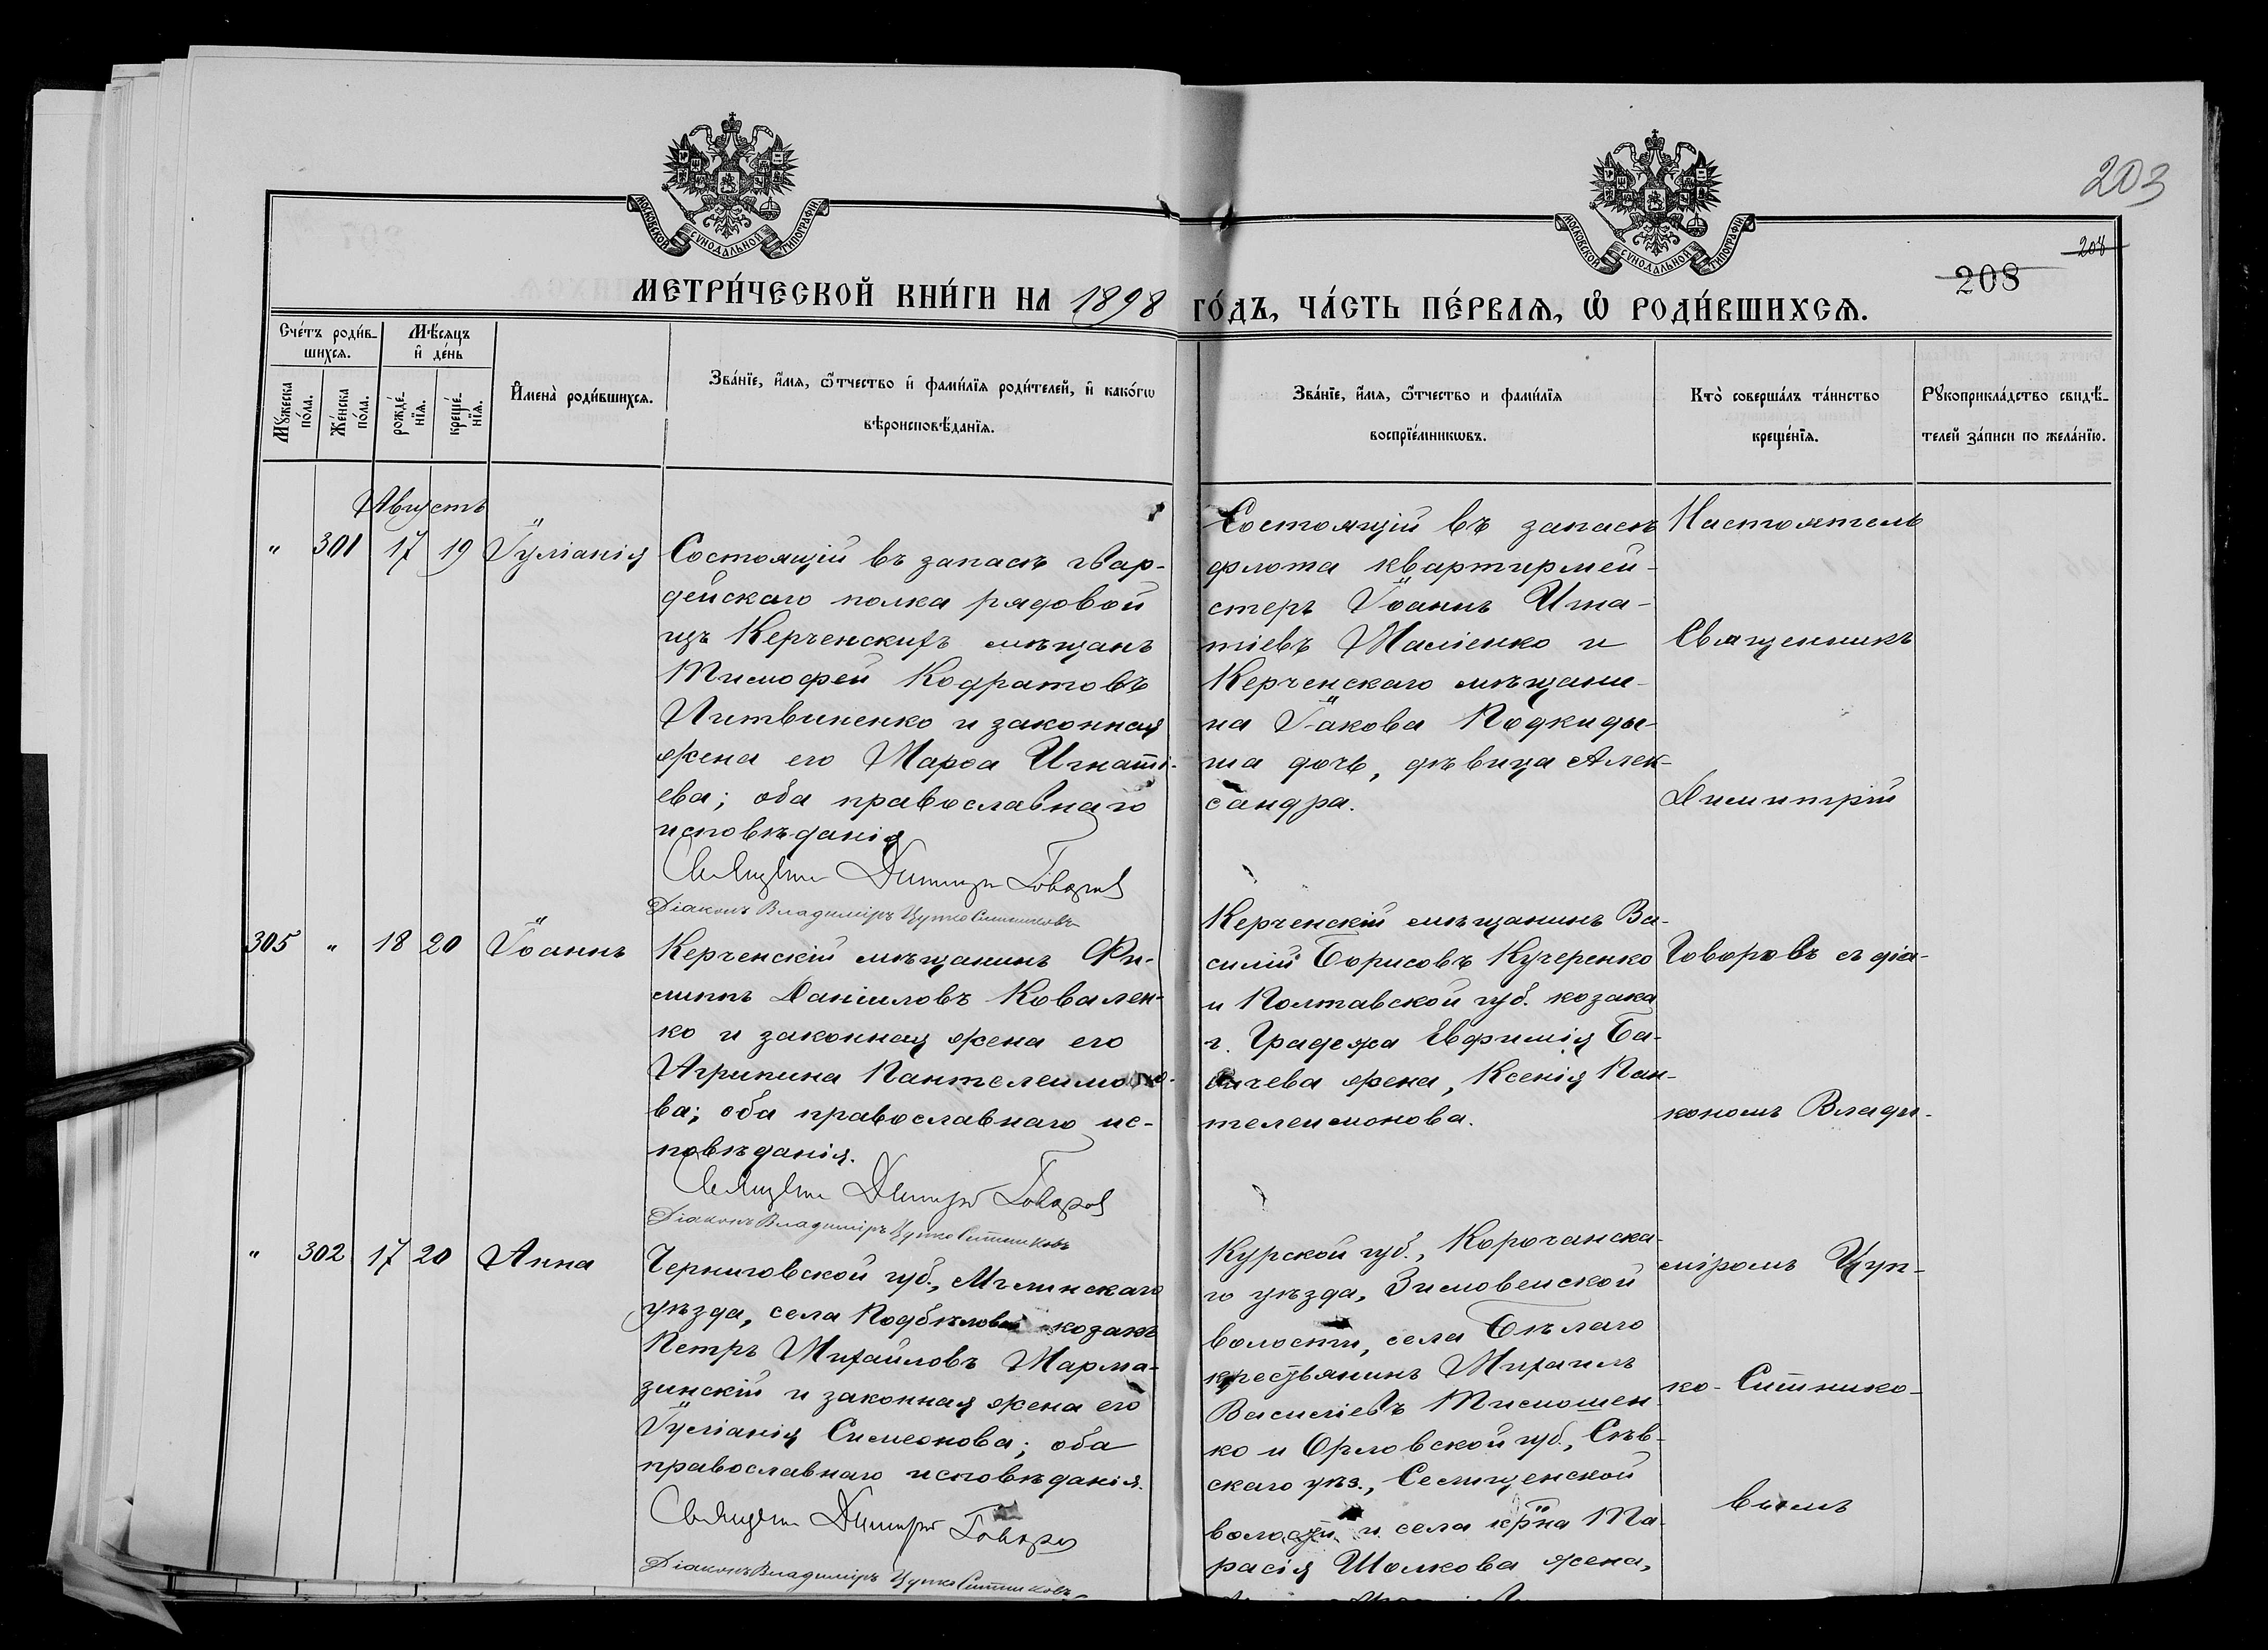 МОСКОВСКОЙ СѴНОДАЛЬНОЙ ТИПОГРАФІИ
МОСКОВСКОЙ СѴНОДАЛЬНОЙ ТИПОГРАФІИ
203
208
208
МЕТРИ́ЧЕСКОЙ КНИ́ГИ НА 1898 ГО́ДЪ, ЧА́СТЬ ПЕ́РВАѦ, Ѡ҆ РОДИ́ВШИХСѦ.
Сче́тъ роди́в-
шихсѧ.
Мѣ́сѧцъ
и҆ де́нь
Мꙋ́жеска
по́ла.
Же́нска
по́ла.
рожде́-
нїѧ.
креще́-
нїѧ.
И҆мена̀ роди́вшихсѧ.
Зва́нїе, и҆́мѧ, ѻ҆́тчество и҆ фами́лїѧ роди́телей, и҆ како́гѡ
вѣроисповѣ́данїѧ.
Зва́нїе, и҆́мѧ, ѻ҆́тчество и фами́лїѧ
воспрїе́мникѡвъ.
Кто̀ соверша́лъ та́инство
креще́нїѧ.
Рꙋкоприкла́дство свидѣ́-
телей за́писи по жела́нїю.
Августъ
" 301 17 19 Іуліанія
Состоящій въ запасѣ гвар-
дейскаго полка рядовой
изъ Керченскихъ мѣщанъ
Тимофей Кодратовъ
Литвиненко и законная
жена его Марѳа Игнаті-
ева; оба православнаго
исповѣданія
Священн Димитри Говоров
Діаконъ Владиміръ Цупко Ситниковъ
Состоящій въ запасѣ
флота квартирмей-
стеръ Іоаннъ Игна-
тіевъ Масіенко и
Керченскаго мѣщани-
на Іакова Подкиды-
ша дочь, дѣвица Алек-
сандра.
305 " 18 20 Іоаннъ
Керченскій мѣщанинъ Фи-
липпъ Даніиловъ Ковален-
ко и законная жена его
Агрипина Пантелеимоно-
ва; оба православнаго ис-
повѣданія.
Священн Димитри Говоров
Діаконъ Владиміръ Цупко Ситниковъ
Керченскій мѣщанинъ Ва-
силій Борисовъ Кучеренко
и Полтавской губ. козака
г. Градежа Евфимія Ба-
жена, Ксенія Пан-
телеимонова.
" 302 17 20 Анна
Черниговской губ., Мглинскаго
уѣзда, села козакъ
Петръ Михайловъ Марма-
зинскій и законная жена его
Іуліанія Симеонова; оба
православнаго исповѣданія.
Священн Димитри Говоров
Діаконъ Владиміръ Цупко Ситниковъ
Курской губ., Корочанска-
го уѣзда, Зимовенской
волости, села Бѣлаго
крестьянинъ Михаилъ
Василіевъ Тимошен-
ко и Орловской губ., Сѣв-
скаго уѣз., Селищенской
волости и села кр̃на Та-
расія Шолкова жена,
Настоятель
Священникъ
Димитрій
Говоровъ съ діа-
кономъ Влади-
міромъ Цуп-
ко-Ситнико-
вымъ